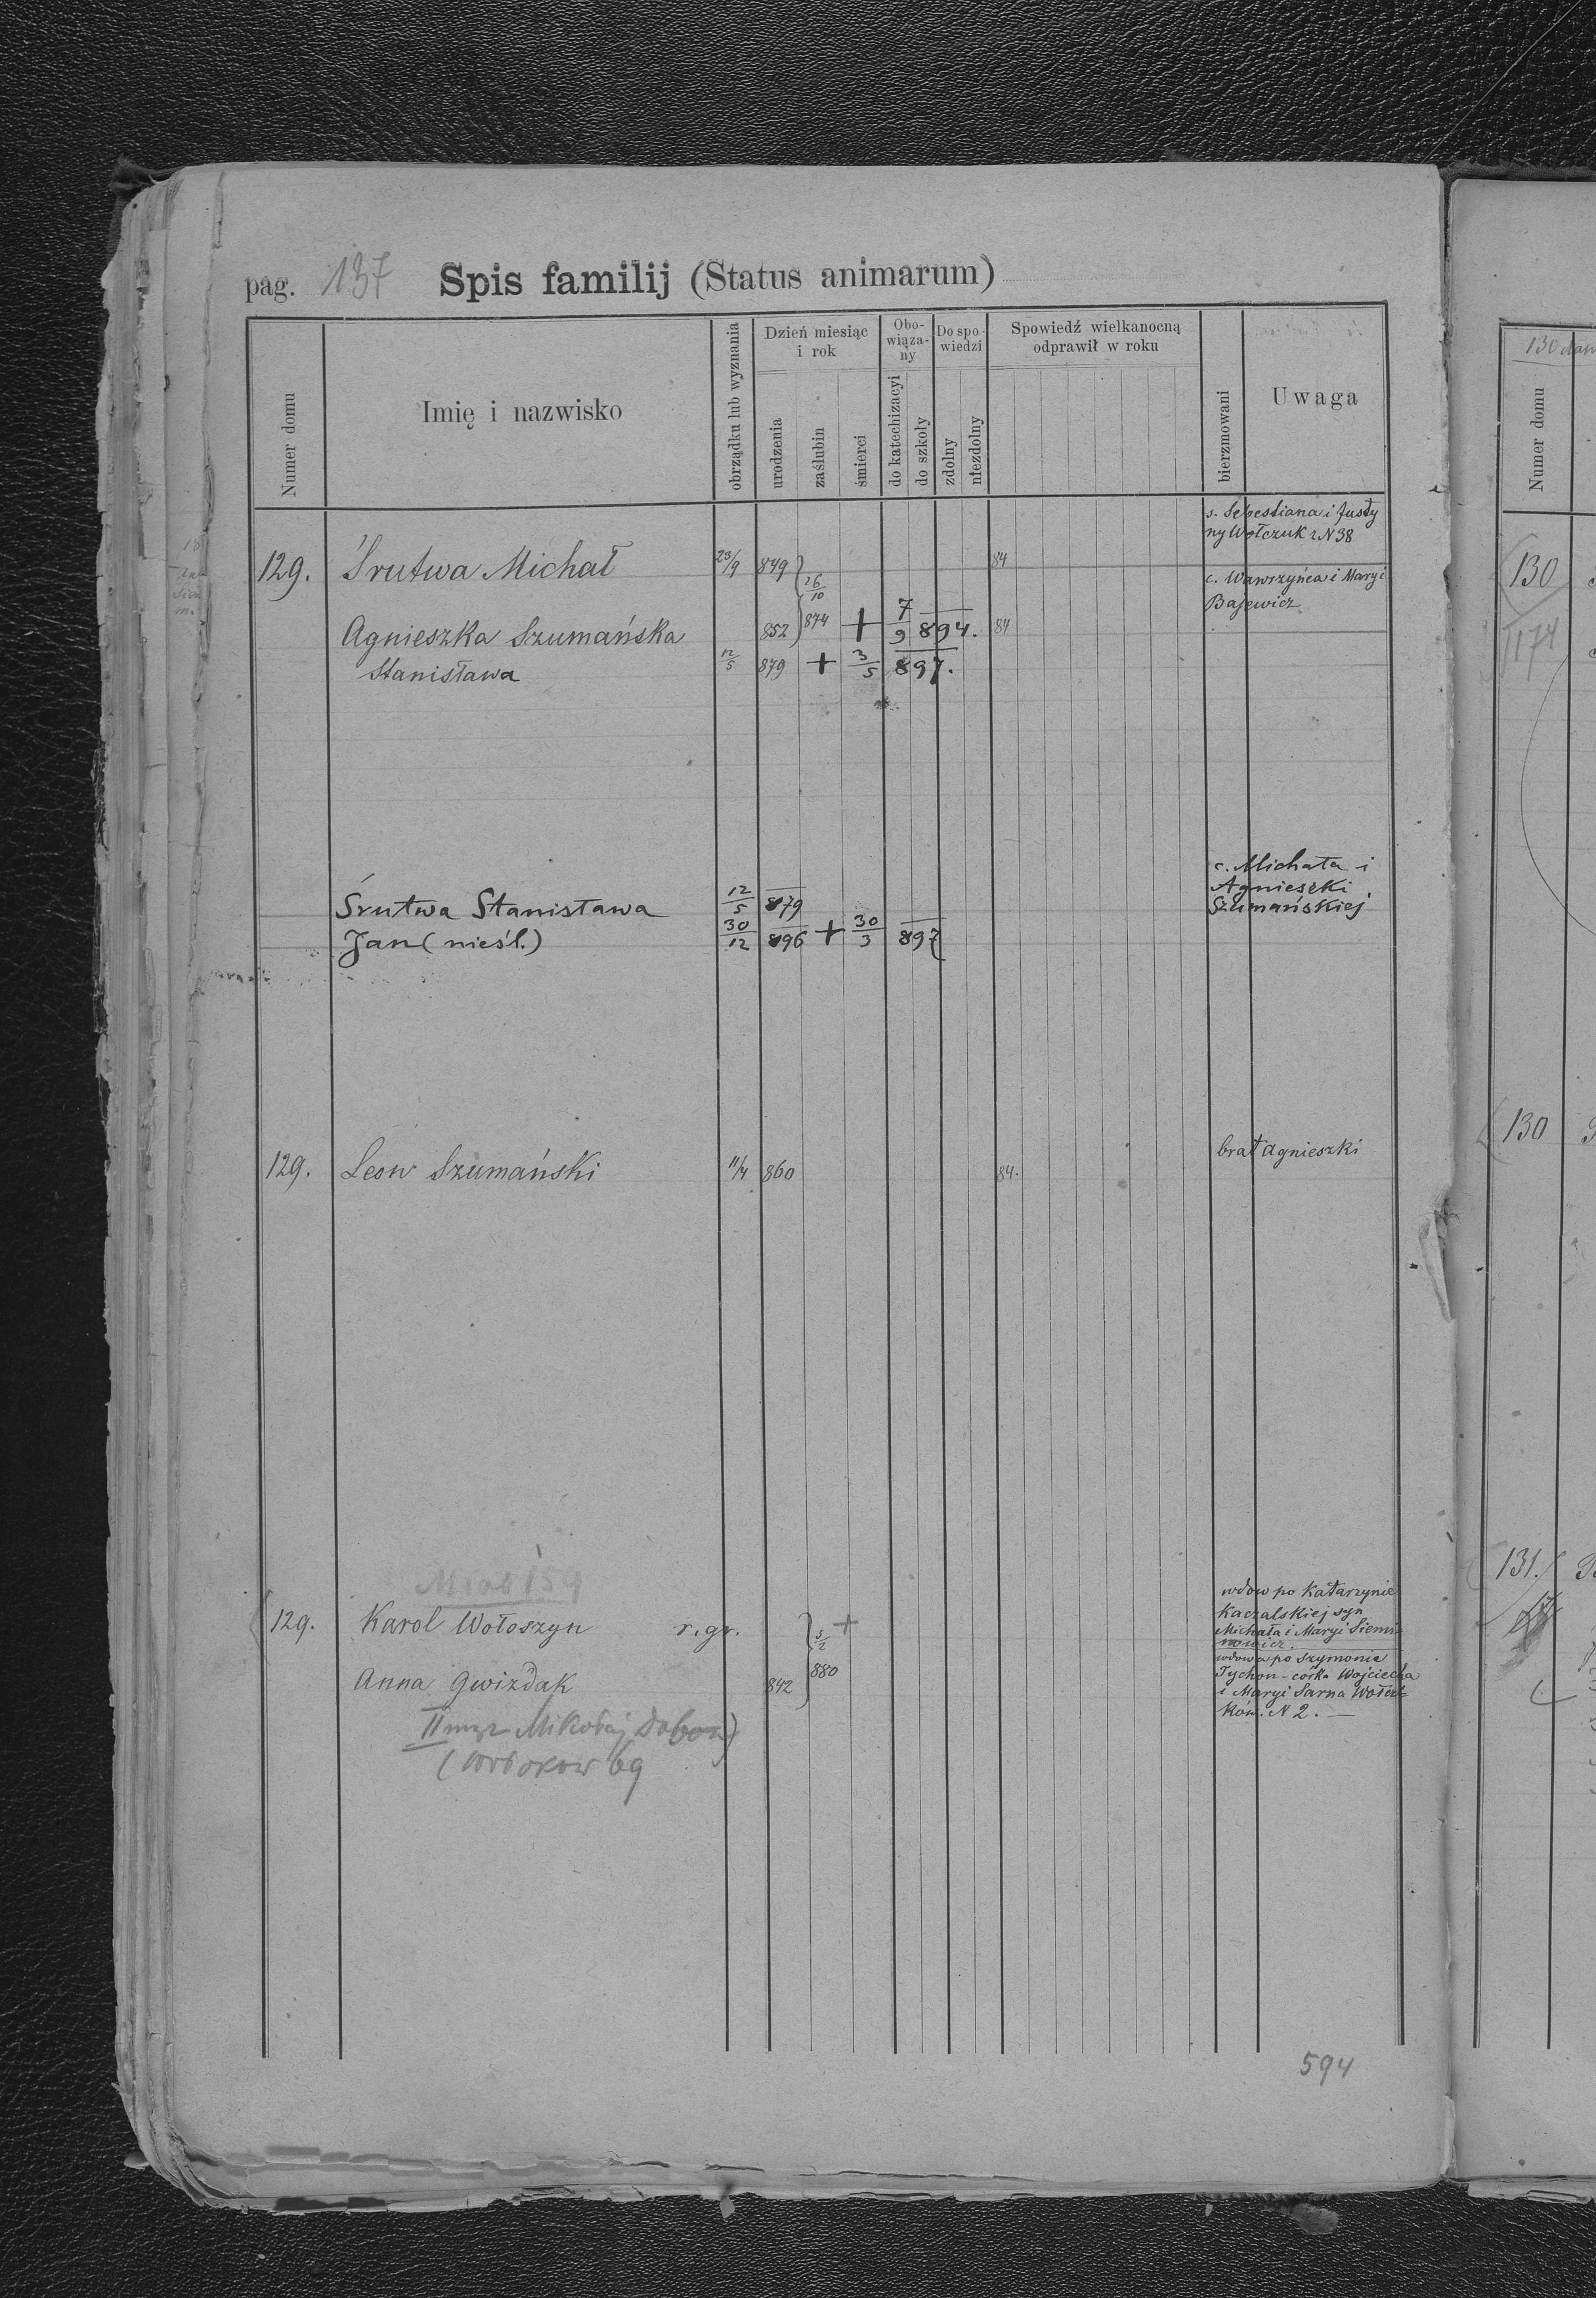 pag. 137 Spis familij (Status animarum)
Numer domu
Imię i nazwisko
obrządku lub wyznania
Dzień miesiąc
i rok
urodzenia
zaślubin
śmierci
Obo-
wiąza-
ny
do katechizacyi
do szkoły
Do spo-
wiedzi
zdolny
niezdolny
Spowiedź wielkanocną
odprawił w roku
bierzmowani
Uwaga
s. Sebestiana i Justy
ny Wołczuk z N 38
129. Srutwa Michał 23/9 849 84
26/10 874
c. Wawrzyńca i Maryi
Bajewicz
Agnieszka Szumańska 852 + 7/9 894. 84
Stanisława 12/5 879 + 3/5 897.
c. Michała i
Agnieszki
Szumańskiej
Śrutwa Stanisława 12/5 879
Jan (nieśl.) 30/12 896 + 30/3 897
brat Agnieszki
129. Leon Szumański 11/4 860 84.
159
wdow po Katarzynie
Kaczalskiej syn
Michała i Maryi Siemi
nowicz.
129. Karol Wołoszyn r. gr. 3/2 880 +
wdowa po Szymonie
Tychon - córka Wojciecha
i Maryi Sarna Wołcz-
ków. N 2. —
Anna Gwiżdak 842
II mąż Mikołaj
69
594
130
Numer domu
130
1174
130
131.